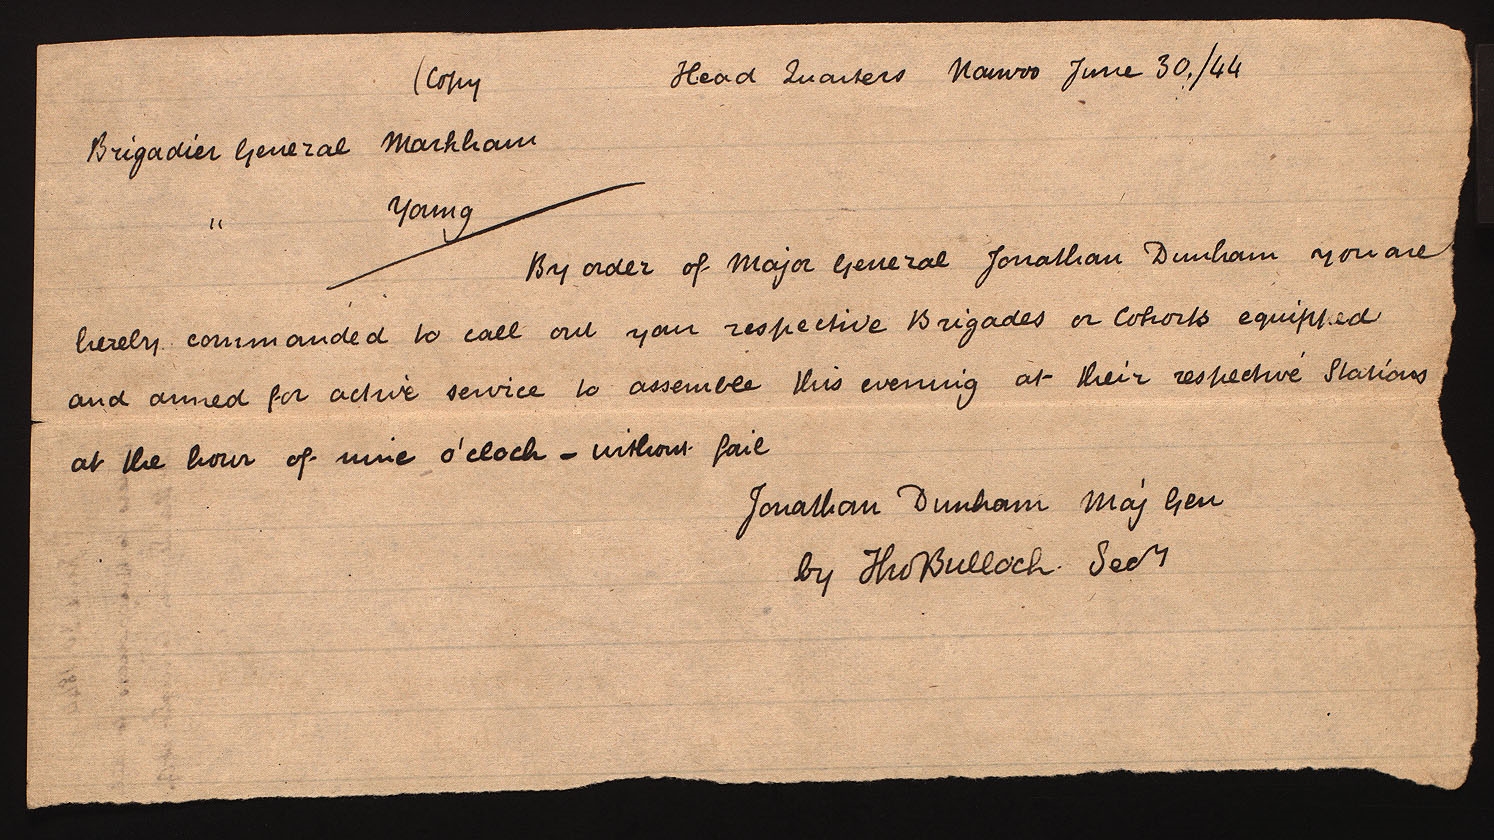 (Copy Head Quarters Nauvoo June 30,/44
Brigadier General Markham
" Young
By order of Major General Jonathan Dunham you are
hereby commanded to call out your respective Brigades or Cohorts equipped
and armed for active service to assemble this evening at their respective Stations
at the hour of nine o'clock – without fail
Jonathan Dunham Maj Gen
by Tho Bullock Secy